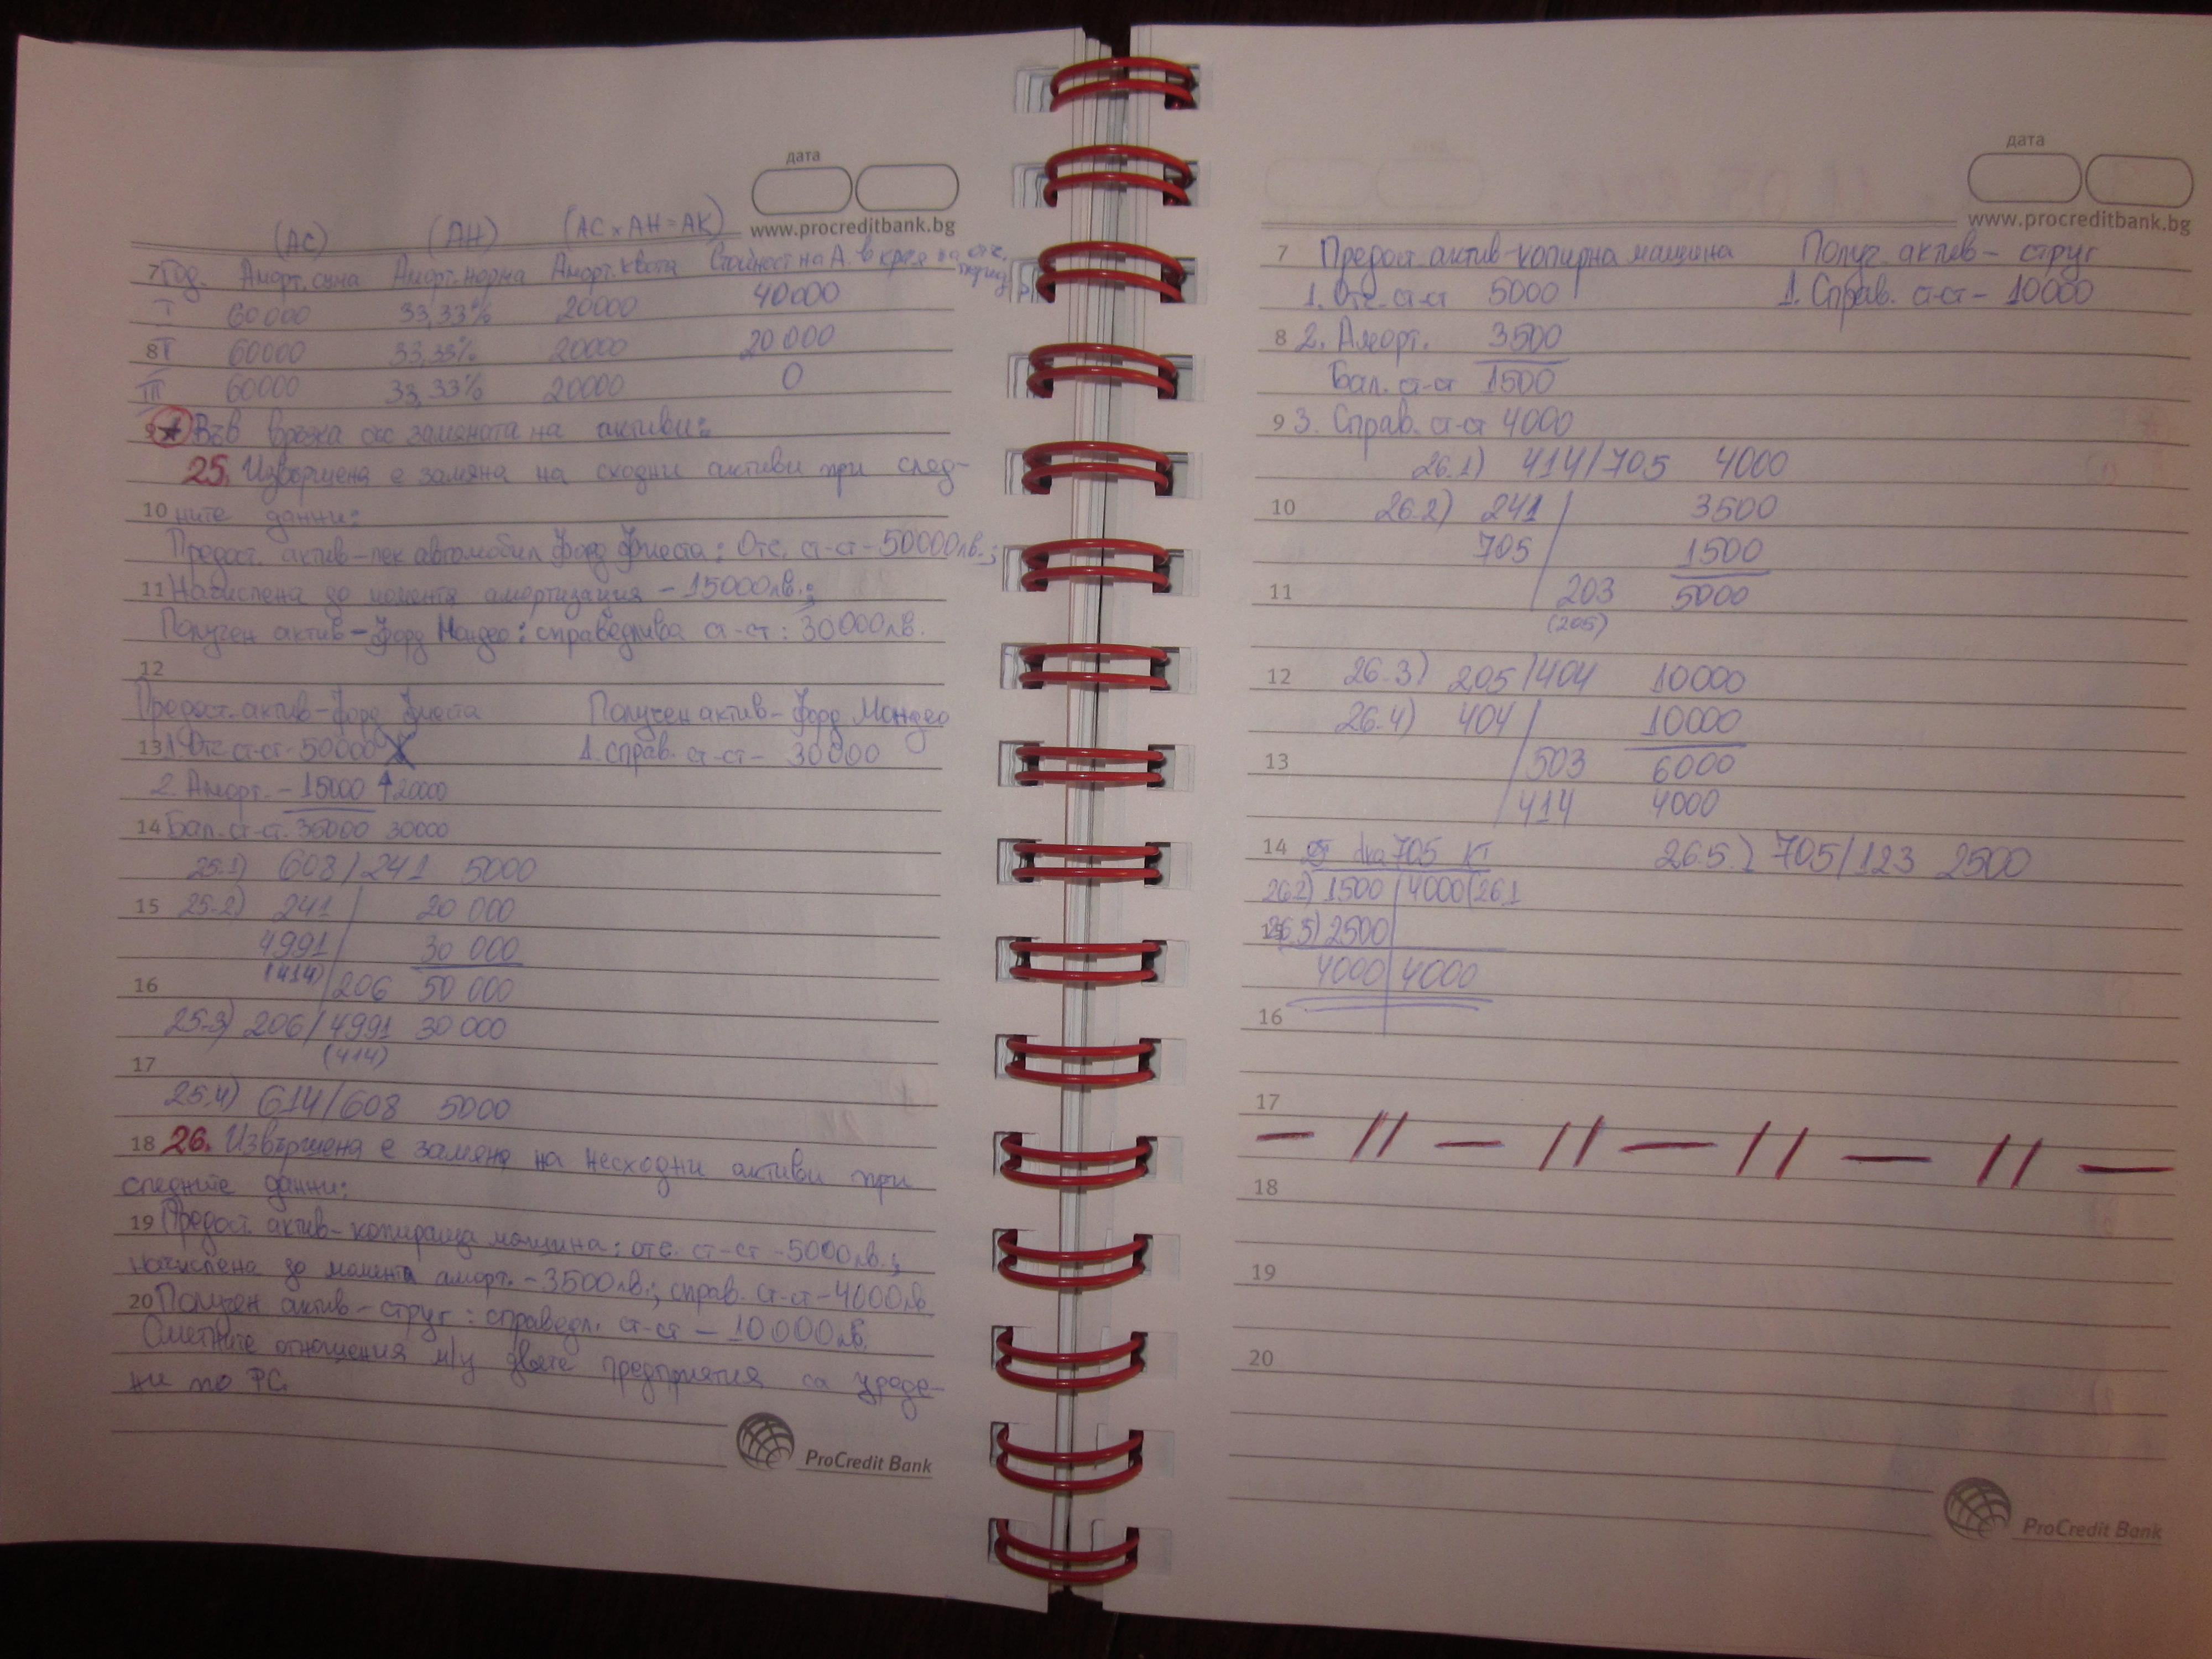 дата
www.procreditbank.bg
(АС) (АН) (АС x АН = АК)
7 Год. Аморт. сума Аморт. норма Аморт. квота Стойност на А. в края на отч. период
I 60000 33,33% 20000 40000
8 II 60000 33,33% 20000 20 000
III 60000 33,33% 20000 0
9 Във връзка със замяната на активи:
25. Извършена е замяна на сходни активи при след-
10 ните данни:
Предост. актив-лек автомобил Форд Фиеста: Отч. ст-ст - 50000лв.;
11 Начислена до момента амортизация - 15000лв.;
Получен актив - Форд Мондео: справедлива ст-ст: 30000лв.
12
Предост. актив-Форд Фиеста Получен актив - Форд Мондео
13 1. Отч ст-ст - 50000 1. справ. ст-ст - 30000
2. Аморт. - 15000 ↑20000
14 Бал. ст-ст. 35000 30000
25.1) 608/241 5000
15 25.2) 241 20 000
4991 30 000
(414)
16 206 50 000
25.3) 206/4991 30 000
(414)
17
25.4) 614/608 5000
18 26. Извършена е замяна на несходни активи при
следните данни:
19 Предост. актив-копираща машина: отч. ст-ст - 5000лв.;
начислена до момента аморт. - 3500лв.; справ. ст-ст - 4000лв
20 Получен актив - струг: справедл. ст-ст - 10000лв.
Сметните отношения м/у двете предприятия са уреде-
ни по РС.
ProCredit Bank
дата
www.procreditbank.bg
7 Предост. актив-копирна машина Получ. актив - струг
1. Отч. ст-ст 5000 1. Справ. ст-ст - 10000
8 2. Аморт. 3500
Бал. ст-ст 1500
9 3. Справ. ст-ст 4000
26.1) 414/705 4000
10 26.2) 241 3500
705 1500
11 203 5000
(205)
12 26.3) 205/404 10000
26.4) 404 10000
13 503 6000
414 4000
14 Дт с/ка 705 Кт 26.5.) 705/123 2500
26.2) 1500 4000(26.1
15 26.5) 2500
4000 4000
16
17
18
19
20
ProCredit Bank